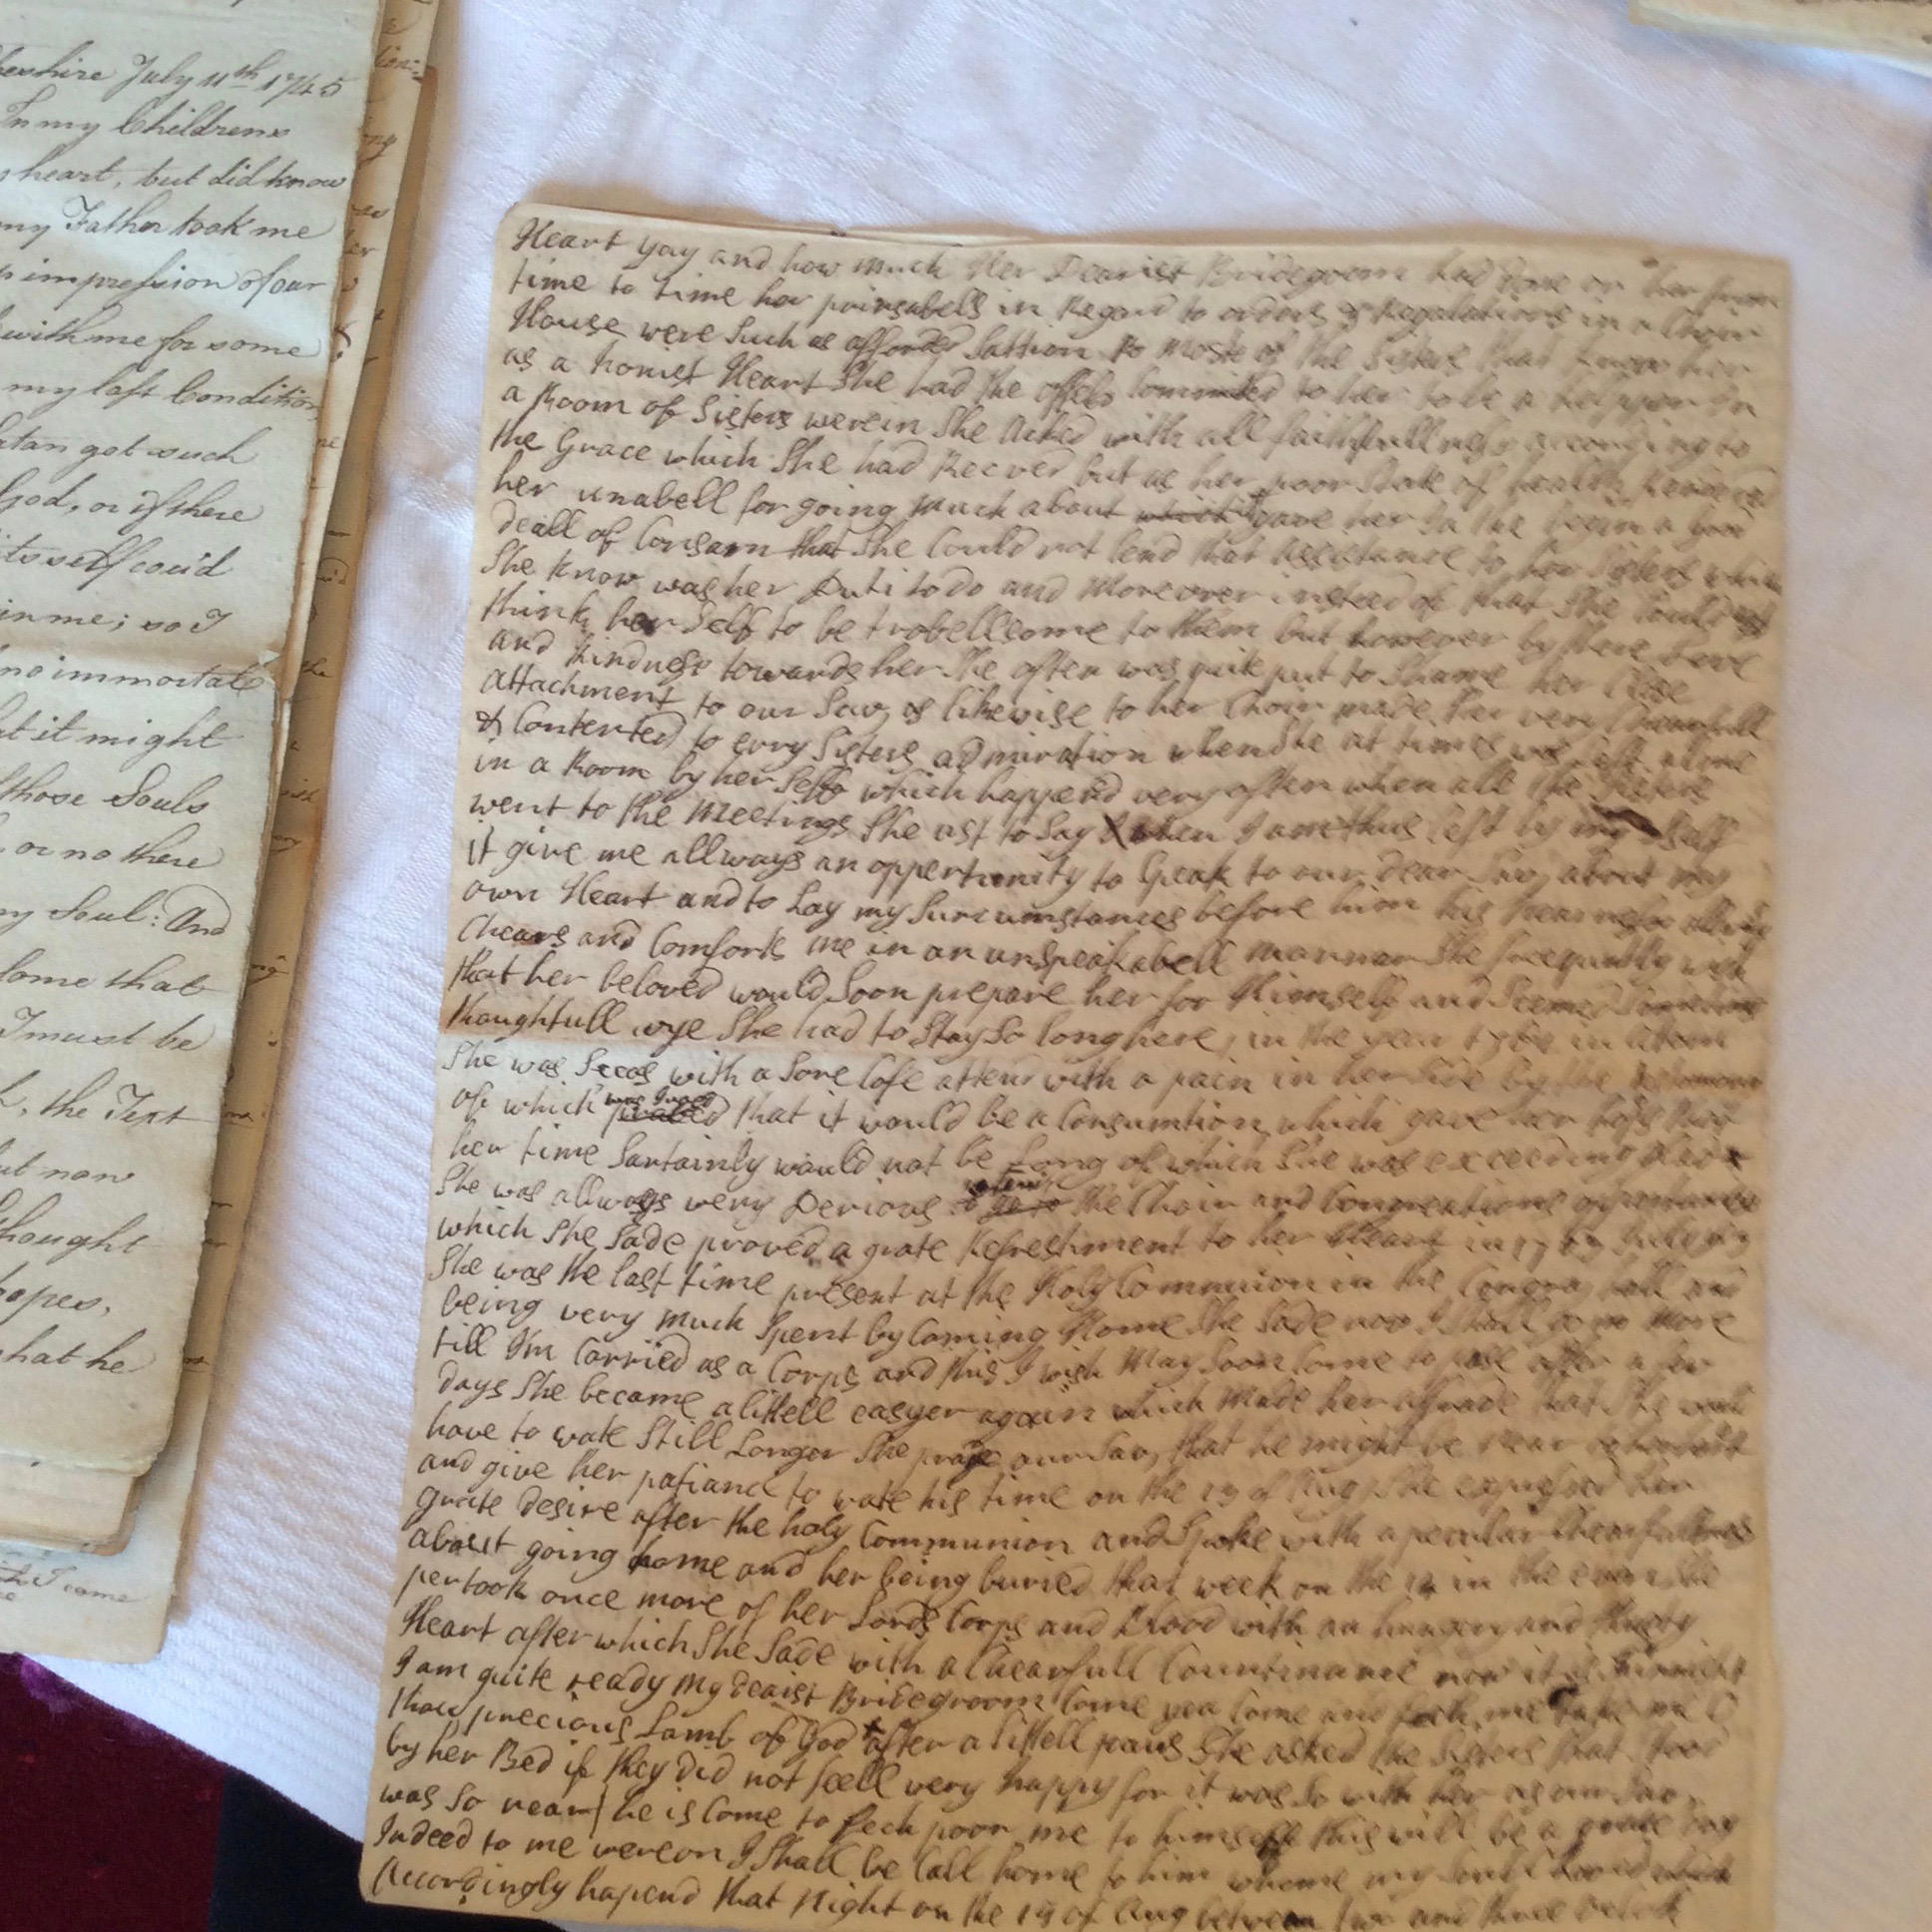 beshire July 11th 1745
In my Childrens
heart, but did know
my Father took me
impression of our
with me for some
my lost Condition
Satan got such
God, or if there
itself cou'd
in me; so I
no immortal
it might
those Souls
or no there
my Soul: And
come that
I must be
the Text
but now
thought
hopes,
what he
I come
Heart yay and how much Her Dearist Bridegroom had done on her from
time to time her prinsabells in Regard to orders & Regulations in a Choir
House were Such as afforded Sattion to moste of the Sisters that know her
as a honist Heart She had the offels Commited to her to be a helpper in
a Room of Sisters werein She Acted with all faithfullness according to
the Grace which She had Recved but as her poor State of health Rendered
her unabell for going much about which it gave her In the begin a good
deall of Consarn that She Could not lend that assistance to her Sisters which
She know was her Duti to do and Moreover insteed of that She Could but
think her Self to be trobellsome to them but however by there Love
and kindness towards her She often was quite put to Shame her Close
attachment to our Sav, as likewise to her Choir made her very Chearfull
& Contented to evry Sisters admiration when She at times was left alone
in a Room by her Self which happend very often when all the Sisters
went to the Meetings She ast to Say when I am thus left by my Self
it give me allways an oppertunity to Speak to our dear Sav, about my
own Heart and to Lay my Surcumstances before him his nearness allways
Chears and Comforts me in an unspeakabell mannar She frequently wish
that her beloved would Soon prepare her for Himself and Seemed Sometimes
thoughtfull wye She had to Stay So long here, in the year in
She was Seeas with a Sore Cofe attend with a pain in her Side by the
of which was Juged that it would be a Consumtion which gave her hops that
her time Sartainly would not be Long of which She was exceeding glad
She was allways very Derious the Choir and Congreations oppertunitys
which She Sade proved a grate Refreshment to her Heart in
She was the last time present at the Holy Communion in the Congra, hall and
being very much Spent by Coming Home She Sade now I Shall go no More
till I'm Carried as a Corps and this I wish May Soon Come to pase after a few
days She became a littell easyer again which Made her afrade that She would
have to wate Still Longer She praye our Sav, that he might be near
and give her patiance to wate his time on the 19 of Aug, She expressed her
grate desire after the holy Communion and Spoke with a peculiar Chearfullness
about going home and her being buried that week on the in the even She
pertook once more of her Lords Corps and Blood with an hungery and thirsty
Heart after which She Sade with a Chearfull Countinance now it is
I am quite ready my Dearist Bridegroom Come yea Come and fech me take me O
thou precious Lamb of God after a littell paus She asked the Sisters that Stood
by her Bed if they Did not feell very happy for it was So with her as our Sav,
was So near he is Come to fech poor me to himself this will be a grate day
Indeed to me wereon I Shall be Call home to him whome my Soull Loved which
Accordingly hapend that Night on the 19 of Aug between two and three oclock